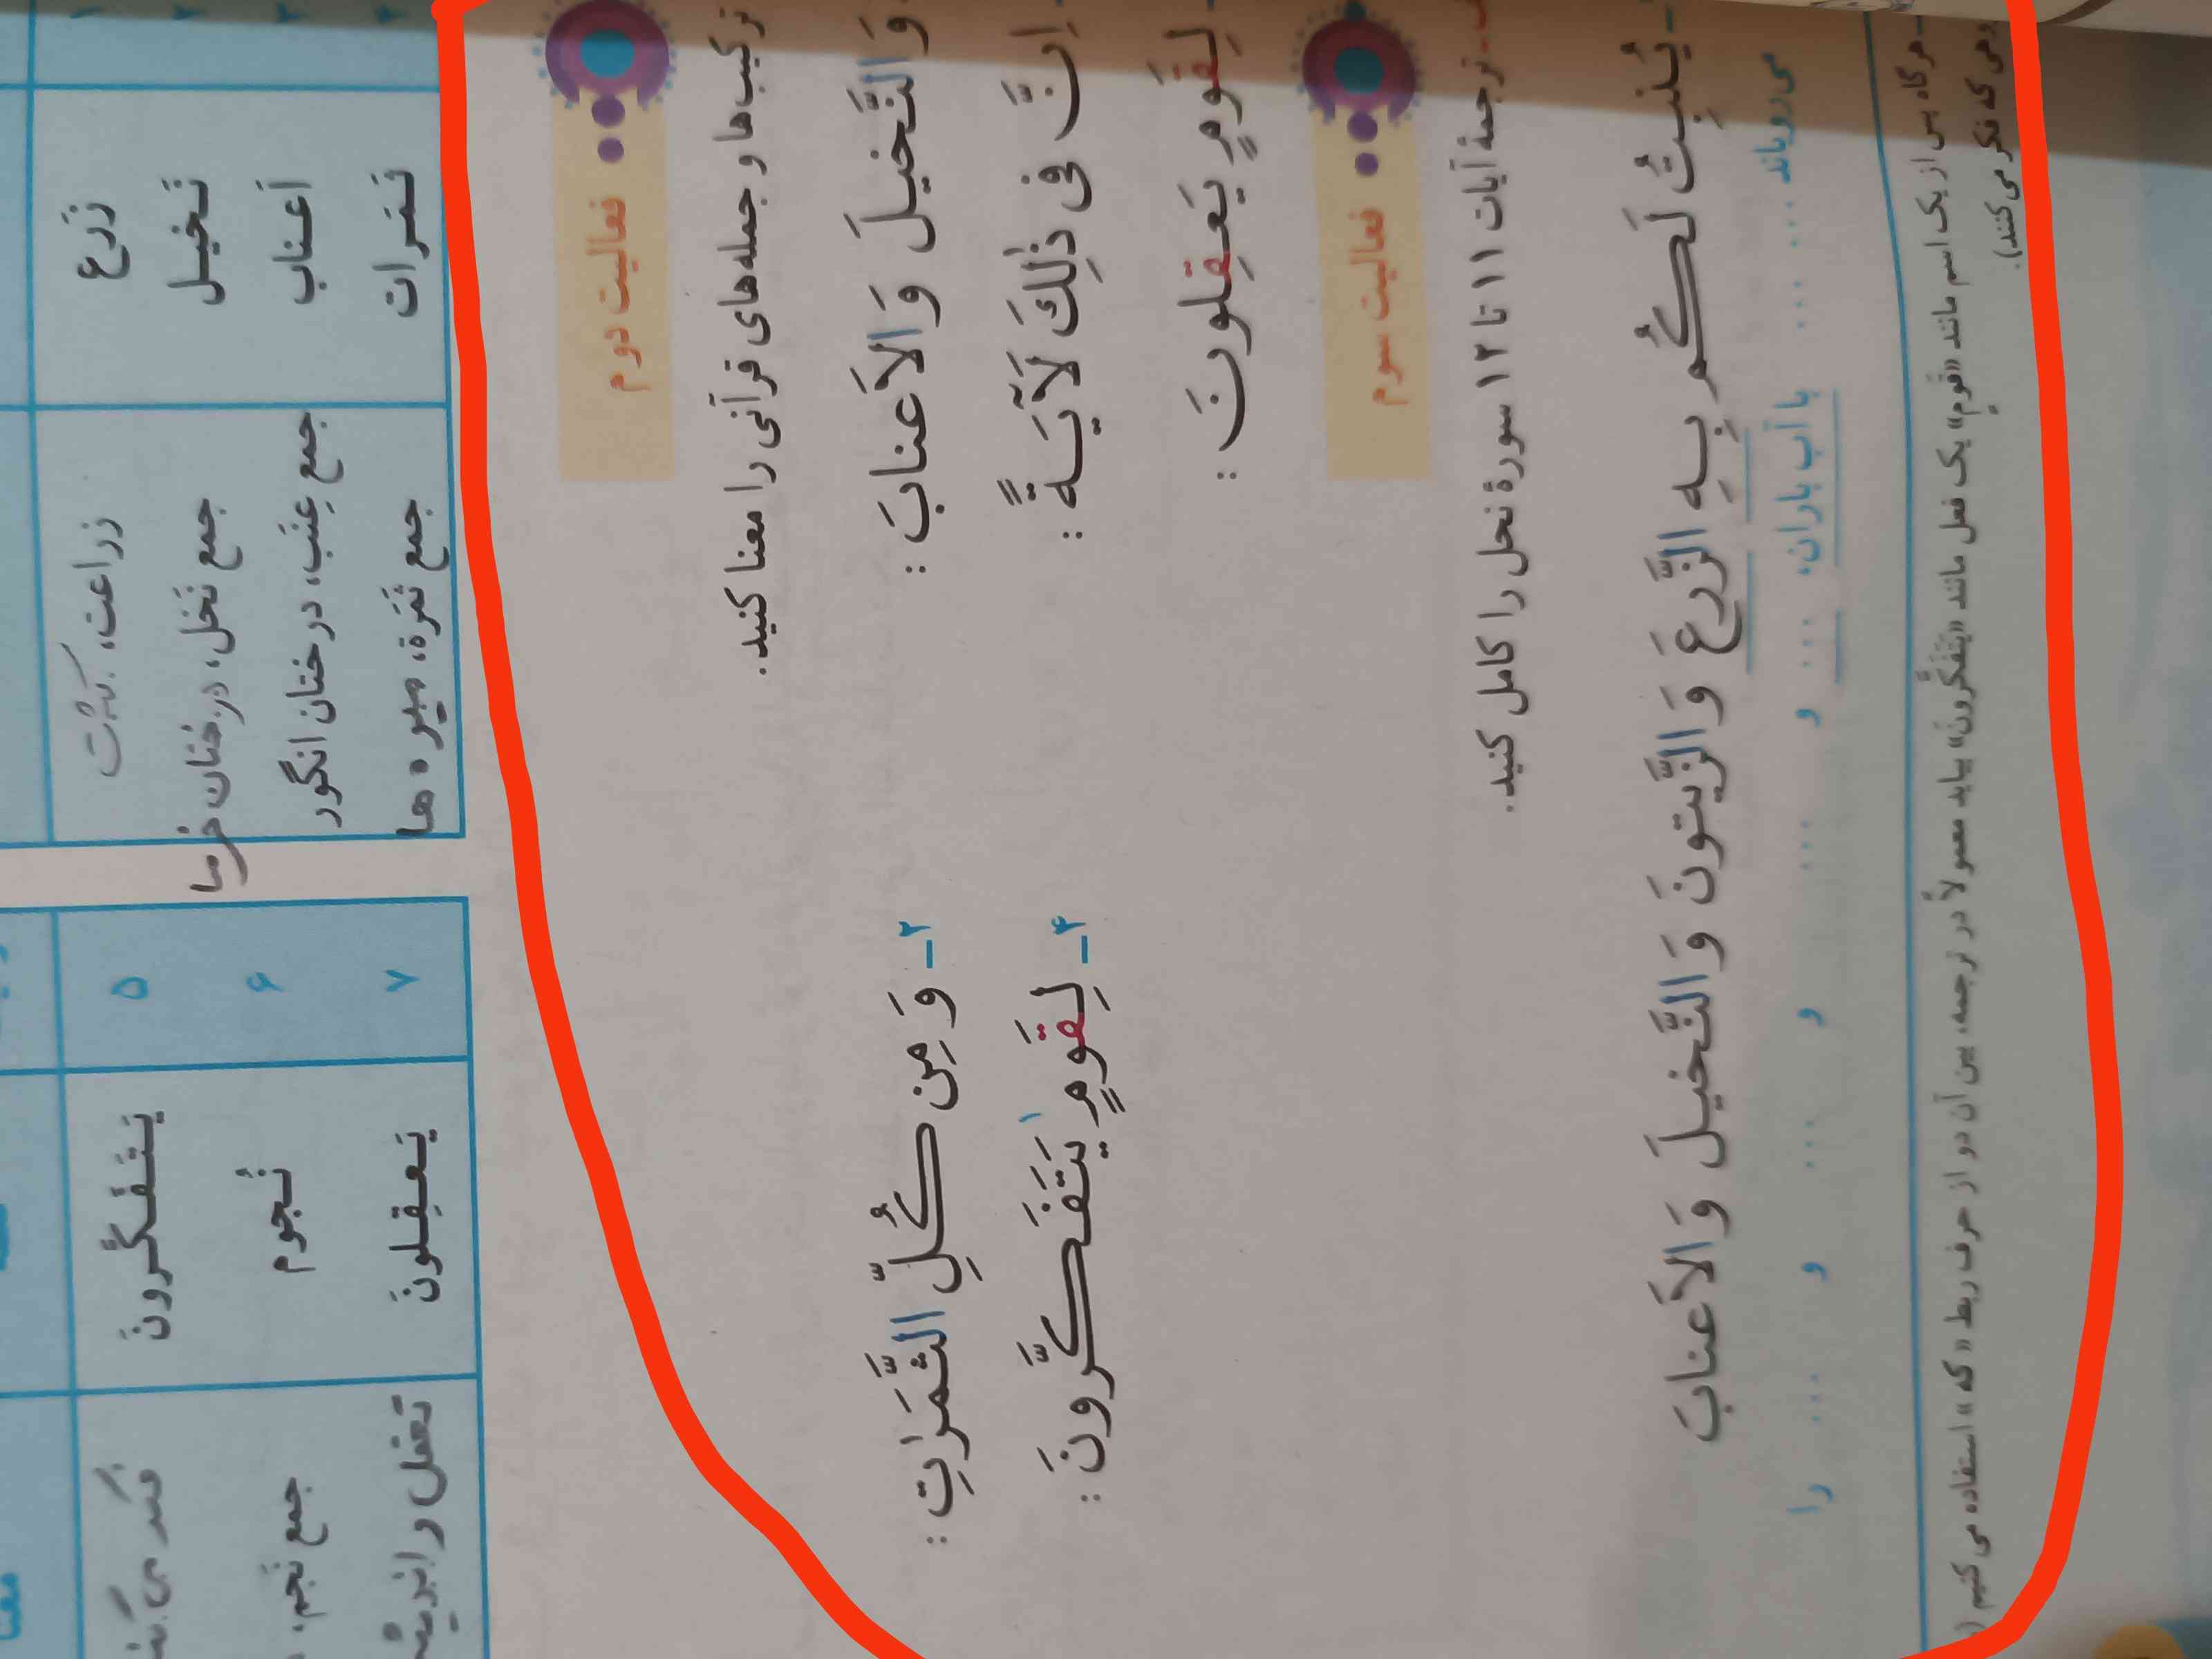 ۱ زَرع زراعت، کِشت
۲ نَخیل جمع نَخل، درختان خرما
۳ اَعناب جمع عِنَب، درختان انگور
۴ ثَمَرات جمع ثَمَرة، میوه ها
معنا
۵ یَتَفَکَّرونَ فکر می کنند
۶ نُجوم جمع نَجم،
۷ یَعقِلونَ تعقل و اندیشه
فعالیت دوم
ترکیب‌ها و جمله‌های قرآنی را معنا کنید.
وَ النَّخیلَ وَ الاَعنابَ : ۲ـ وَ مِن کُلِّ الثَّمَراتِ :
اِنَّ فی ذٰلِكَ لَآیَةً : ۴ـ لِقَومٍ یَتَفَکَّرونَ۱ :
لِقَومٍ یَعقِلونَ :
فعالیت سوم
ترجمهٔ آیات ۱۱ تا ۱۲ سورهٔ نحل را کامل کنید.
یُنبِتُ لَکُم بِهِ الزَّرعَ وَ الزَّیتونَ وَ النَّخیلَ وَ الاَعنابَ
می‌رویاند ... ... با آب باران، ... و ... و ... و ... را
هرگاه پس از یک اسم مانند «قَومٍ» یک فعل مانند «یَتَفَکَّرونَ» بیاید معمولاً در ترجمه، بین آن دو از حرف ربط «که» استفاده می کنیم (
که فکر می کنند).